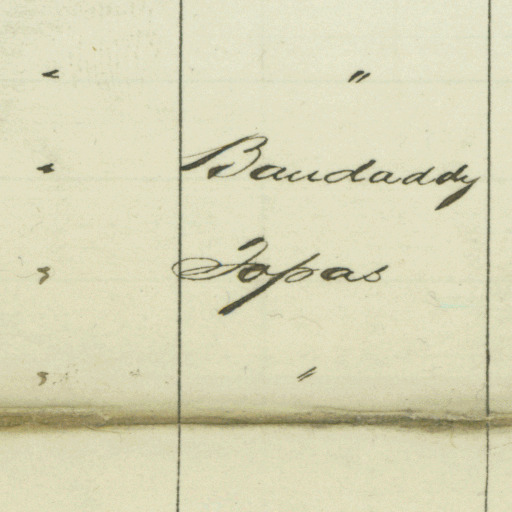 " "
" Baudaddy
" Topas
" "